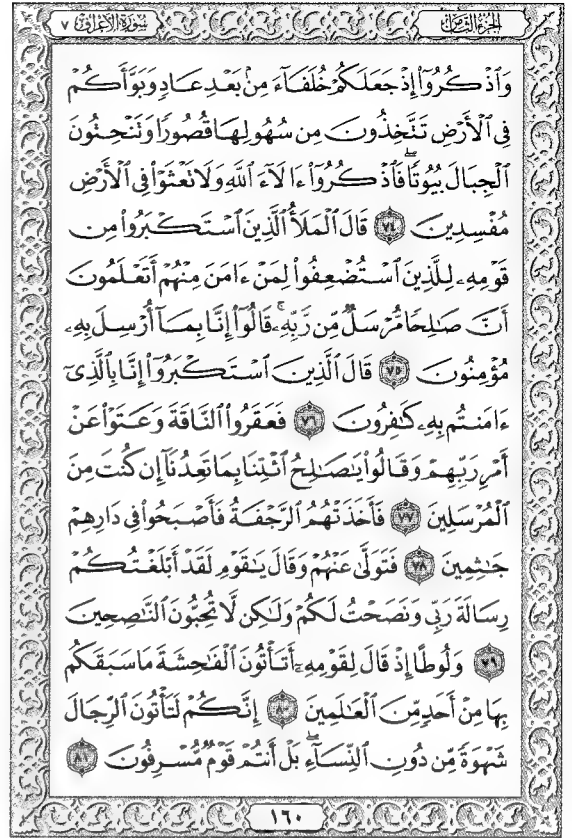 سُورَةُ الأَعْرَافِ ٧
الجُزْءُ الثَّامِنُ
وَٱذْكُرُوٓا۟ إِذْ جَعَلَكُمْ خُلَفَآءَ مِنۢ بَعْدِ عَادٍ وَبَوَّأَكُمْ
فِى ٱلْأَرْضِ تَتَّخِذُونَ مِن سُهُولِهَا قُصُورًا وَتَنْحِتُونَ
ٱلْجِبَالَ بُيُوتًا ۖ فَٱذْكُرُوٓا۟ ءَالَآءَ ٱللَّهِ وَلَا تَعْثَوْا۟ فِى ٱلْأَرْضِ
مُفْسِدِينَ ٧٤ قَالَ ٱلْمَلَأُ ٱلَّذِينَ ٱسْتَكْبَرُوا۟ مِن
قَوْمِهِۦ لِلَّذِينَ ٱسْتُضْعِفُوا۟ لِمَنْ ءَامَنَ مِنْهُمْ أَتَعْلَمُونَ
أَنَّ صَٰلِحًا مُّرْسَلٌ مِّن رَّبِّهِۦ ۚ قَالُوٓا۟ إِنَّا بِمَآ أُرْسِلَ بِهِۦ
مُؤْمِنُونَ ٧٥ قَالَ ٱلَّذِينَ ٱسْتَكْبَرُوٓا۟ إِنَّا بِٱلَّذِىٓ
ءَامَنتُم بِهِۦ كَٰفِرُونَ ٧٦ فَعَقَرُوا۟ ٱلنَّاقَةَ وَعَتَوْا۟ عَنْ
أَمْرِ رَبِّهِمْ وَقَالُوا۟ يَٰصَٰلِحُ ٱئْتِنَا بِمَا تَعِدُنَآ إِن كُنتَ مِنَ
ٱلْمُرْسَلِينَ ٧٧ فَأَخَذَتْهُمُ ٱلرَّجْفَةُ فَأَصْبَحُوا۟ فِى دَارِهِمْ
جَٰثِمِينَ ٧٨ فَتَوَلَّىٰ عَنْهُمْ وَقَالَ يَٰقَوْمِ لَقَدْ أَبْلَغْتُكُمْ
رِسَالَةَ رَبِّى وَنَصَحْتُ لَكُمْ وَلَٰكِن لَّا تُحِبُّونَ ٱلنَّٰصِحِينَ
٧٩ وَلُوطًا إِذْ قَالَ لِقَوْمِهِۦٓ أَتَأْتُونَ ٱلْفَٰحِشَةَ مَا سَبَقَكُم
بِهَا مِنْ أَحَدٍ مِّنَ ٱلْعَٰلَمِينَ ٨٠ إِنَّكُمْ لَتَأْتُونَ ٱلرِّجَالَ
شَهْوَةً مِّن دُونِ ٱلنِّسَآءِ ۚ بَلْ أَنتُمْ قَوْمٌ مُّسْرِفُونَ ٨١
١٦٠